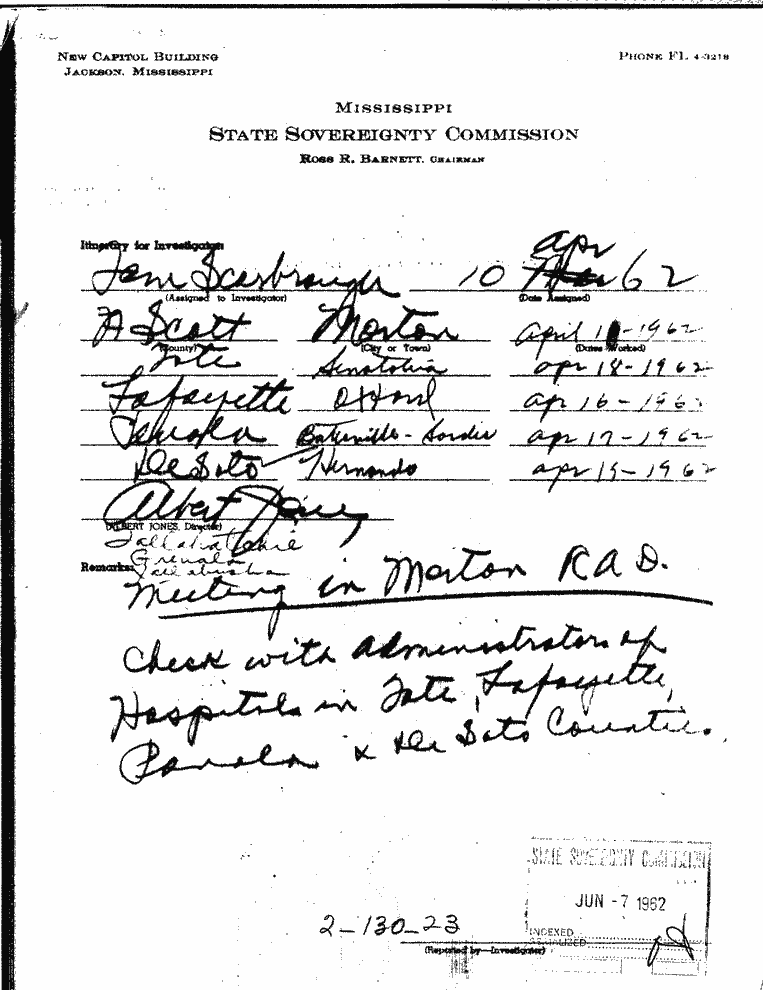 NEW CAPITOL BUILDING
JACKSON, MISSISSIPPI
PHONE FL 4-3218
MISSISSIPPI
STATE SOVEREIGNTY COMMISSION
ROSS R. BARNETT, CHAIRMAN
Itinerary for Investigator:
Apr
Tom Scarbrough 10 62
(Assigned to Investigator) (Date Assigned)
Scott Morton April 1 -1962
(County) (City or Town) (Dates Worked)
Tate Senatobia Apr 18-1962
Lafayette Oxford Apr 16-1962
Panola Batesville - Sardis Apr 17-1962
De Soto Hernando Apr 19-1962
Albert Jones
(ALBERT JONES, Director)
Tallahatchie
Grenada
Remarks: Yallabusha
Meeting in Morton R A D.
Check with Administrators of
Hospitals in Tate, Lafayette,
Panola & De Soto Counties.
STATE SOVEREIGNTY COMMISSION
JUN -7 1962
2-130-23
INDEXED
SERIALIZED
(Reported by—Investigator)